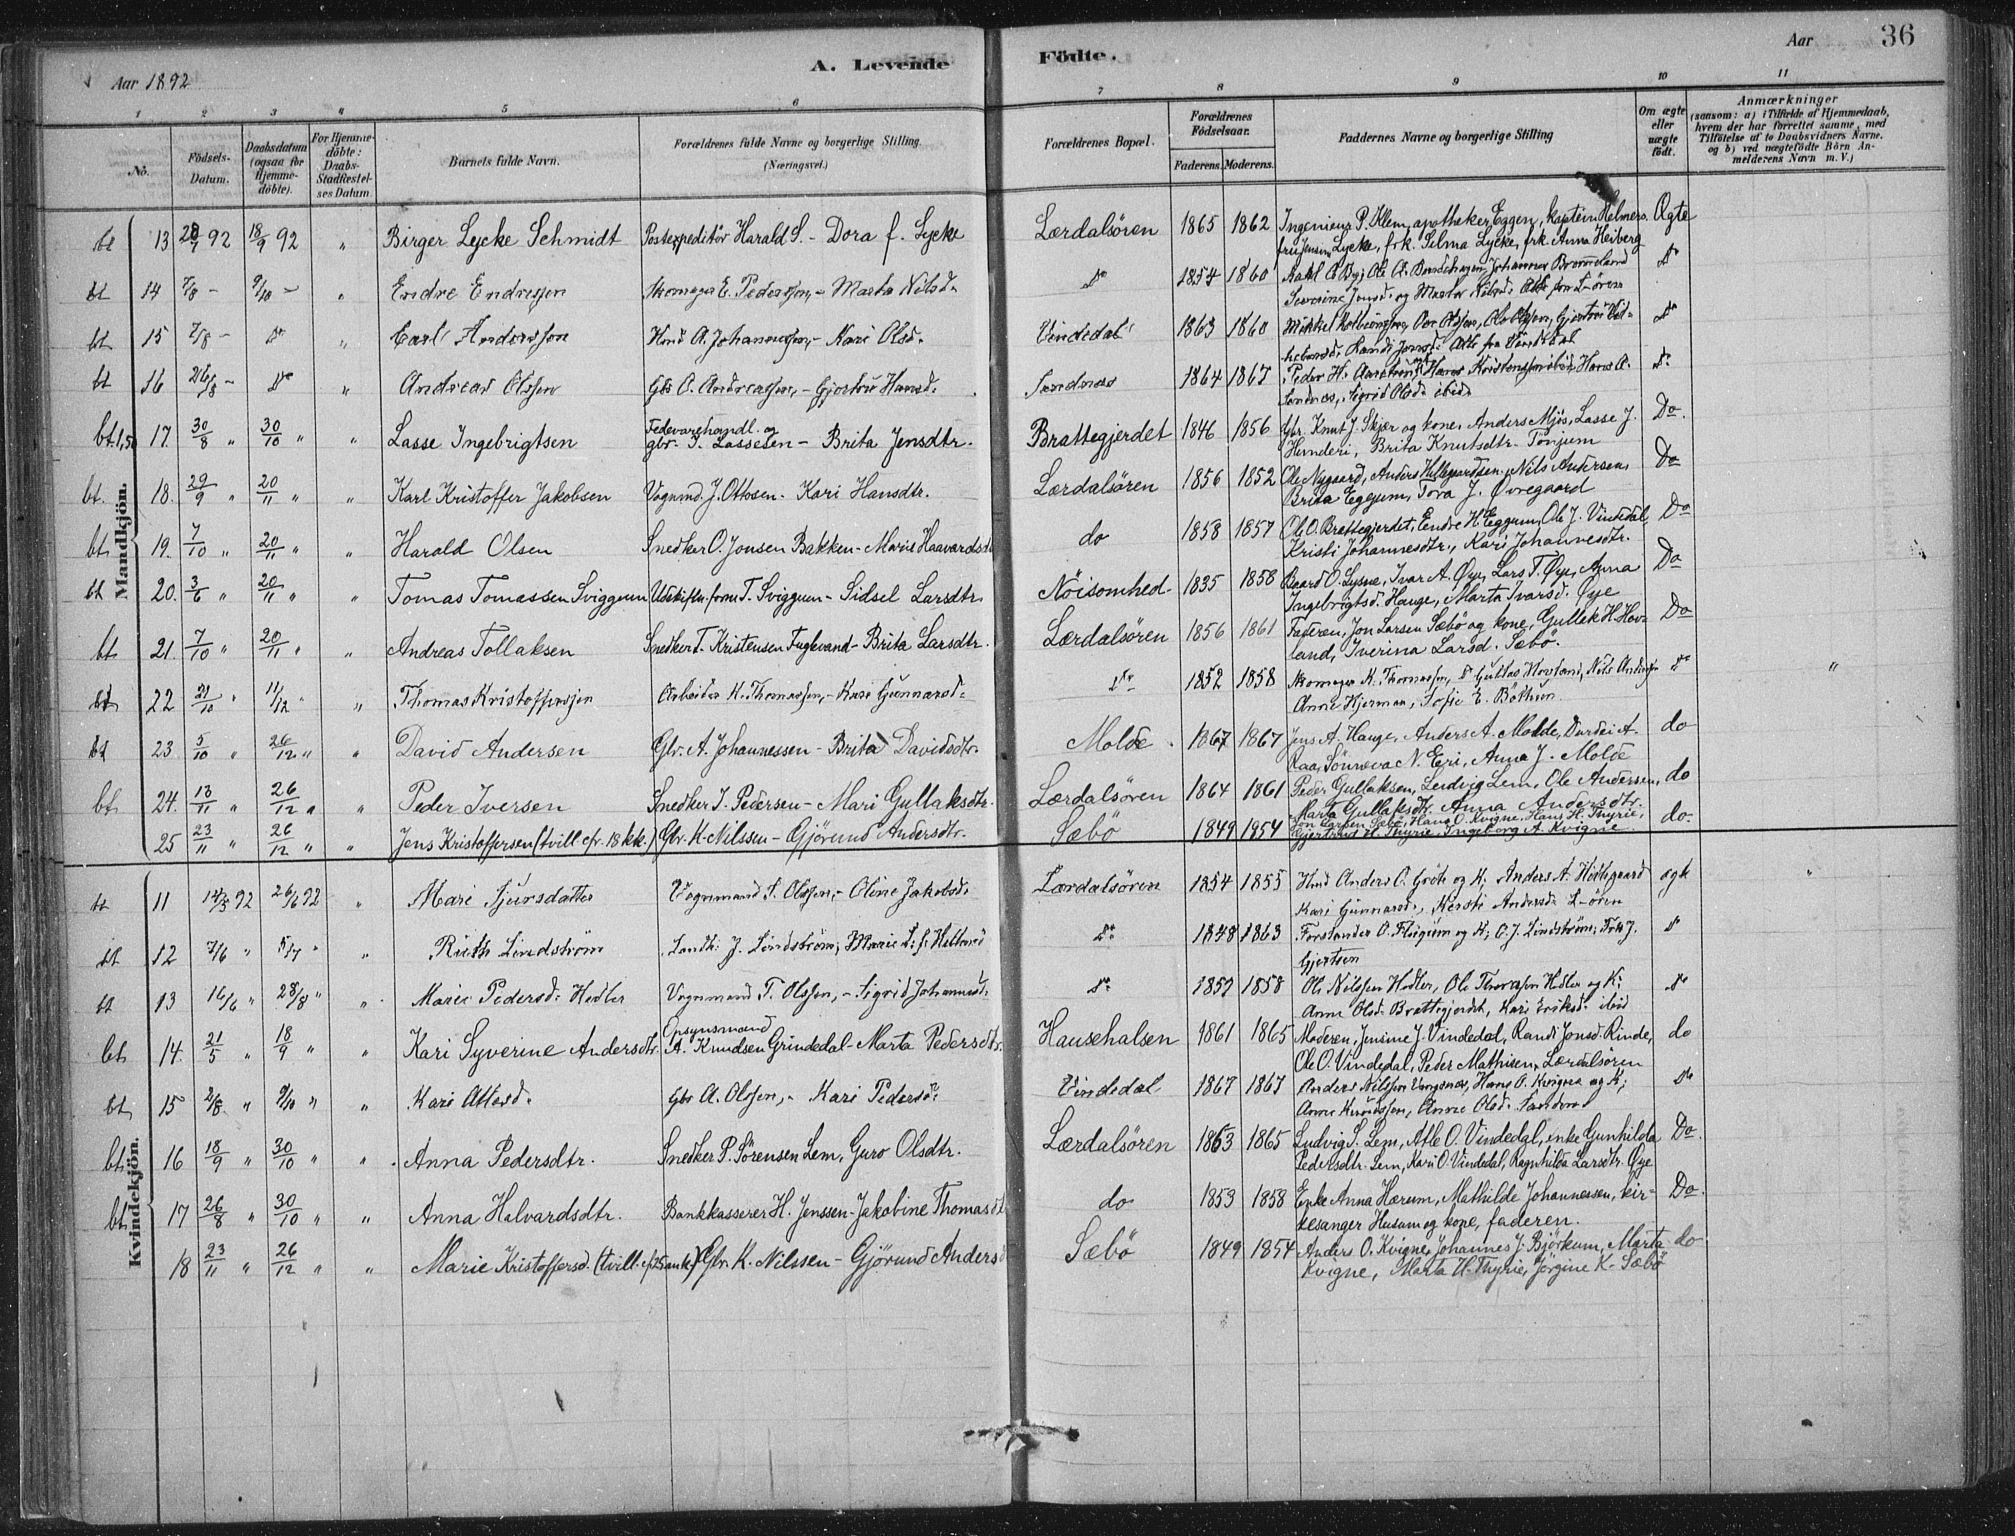 Aar 1892
A. Levende
Födte.
Aar
36
1 2 3 4 5 6 7 8 9 10 11
No.
Födsels-Datum.
Daabsdatum (ogsaa for Hjemmedöbte).
For Hjemmedöbte: Daabs-Stadfæstelses Datum
Barnets fulde Navn.
Forældrenes fulde Navne og borgerlige Stilling (Næringsvei.)
Forældrenes Bopæl.
Forældrenes Födselsaar.
Faderens. Moderens.
Faddernes Navne og borgerlige Stilling
Om ægte eller uægte födt.
Anmærkninger
(saasom: a) i Tilfælde af Hjemmedaab,
hvem der har forrettet samme, med
Tilföielse af to Daabsvidners Navne,
og b) ved uægtefödte Börn Anmelderens Navn m. V.)
Mandkjön.
bt 13 92 18/9 92 " Birger Lycke Schmidt Postexpeditör Harald S. - Dora f. Lycke Lærdalsören 1865 1862 Ingenieur P. Klem, apotheker Eggen, kaptein Helmers Ægte
Lycke, frk. Selma Lycke, frk. Anna Heiberg
bt 14 7/8 - 9/10 - " Endre Endresen Skomager E. Pederssen, - Marta Nilsd. do 1854 1860 do
Severine Jensd. og Marta Nilsd. Alle fra L-ören
bt 15 7/8 - do " Carl Anderssen A. Johannessen, - Kari Olsd. Vindedal 1863 1860 do
bt 16 26/8 - do " Andreas Olssen Gbr O. Andreassen, - Gjertru Hansd. 1864 1867 Peder H. do
Sigrid Olsd. ibid.
bt 1,50 17. 30/8 " 30/10 " " Lasse Ingebrigtsen Fedevarehandl. og
gbr. I. Lassesen - Brita Jensdtr. Brattegjerdet 1846 1856 Gbr. Knut J. Skjær og kone, Anders Mjös, Lasse J. Do.
Hunderi, Brita Knutsdtr. Tönjum
bt. 18. 29/9 " 20/11 " " Karl Kristoffer Jakobsen Vognmd. J. Ottosen - Kari Hansdtr. Lærdalsören 1856 1852 Ole Nygaard, Anders Hillegaardsen, Nils Andersen, Do
Brita Eggjum, Tora J. Øvregaard
bt. 19. 7/10 " 20/11 " " Harald Olsen Snedker O. Jonsen Bakken - Marie Haavardsdtr do 1858 1857 Ole O. Brattegjerdet, Endre H. Eggum, Ole J. Vindedal, Do
Kristi Johannesdtr., Kari Johannesdtr.
bt 20. 3/6 " 20/11 " " Tomas Tomassen Sviggum T. Sviggum - Sidsel Larsdtr. Nöisomhed 1835 1858 Baard O. Lysne, Ivar A. Øye, Lars T. Øye, Anna Do
Ingebrigtsd. Hauge, Marta Ivarsd. Øye
bt 21. 7/10 " 20/11 " " Andreas Tollaksen Snedker T. Kristensen Fuglevand - Brita Larsdtr. Lærdalsören 1856 1861 Faderen, Jon Larsen Sæbö og kone, Gullek H. Hov- Do
land, Iverina Larsd. Sæbö.
bt 22 21/10 " 11/12 " " Thomas Kristofferssen Arbeider K. Thomassen, - Kari Gunnarsd. do 1852 1858 Skomager K. Thomassen, Hovland, Nils Anderssen do "
Anne Hjerman, Sofie E. Böthun
bt 23. 5/10 " 26/12 " " David Andersen Gbr. A. Johannessen - Brita Davidsdtr. Molde. 1867 1867 Jens A. Hauge, Anders A. Molde, Durdei A. do
Raa, Sönneva N. Eri, Anna J. Molde
bt. 24. 13/11 " 26/12 " " Peder Iversen Snedker I. Pedersen - Mari Gullaksdtr. Lærdalsören 1864 1861 Peder Gullaksen, Ludvig Lem, Ole Andersen, do
Marta Gullaksdtr. Anna Andersdtr.
25 23/11 " 26/12 " " Jens Kristoffersen (tvill. cfr. 18 kk.) Gbr. K. Nilssen - Gjörund Andersdtr. Sæbö 1849 1954 Jon Larsen Sæbö, Hans O. Kvigne, Hans H. Thyrie, do
Gjertrud H. Thyrie, Ingeborg A. Kvigne
Kvindekjön.
bt 11 14/5 92 26/6 92 " Mari Sjursdatter Vognmand S. Olssen, - Oline Jakobsd. Lærdalsören 1854 1855 Anders O. Gröte og K; Anders A. ægte
Kari Gunnarsd., Kersti Andersd. L-ören
bt 12 7/6 " " " Ruth Lindström Landh. J. Lindström, Marie L. f. do 1848 1863 Forstander O. Flugum og K; O. J. Lindström, do
Gjertsen
bt 13 16/6 " 28/8 " " Marie Pedersd. Hodler Vognmand T. Olssen, - Sigrid Johannesd. do 1857 1858 Ole Nilssen Hodler, Ole Hodler og K; do
Anne Olsd. Brattegjerdet, Kari Eriksd. ibid
bt 14. 21/5 " 18/9 " " Kari Syverine Andersdtr. Opsynsmand
A. Knudsen Grindedal - Marta Pedersdtr. Hausehalsen 1861 1865 Moderen, Jensine J. Vindedal, Randi Jonsd. Rinde, do
Ole O. Vindedal, Peder Mathisen, Lærdalsören
bt 15 2/8 " 9/10 " " Kari Attersd. Gbr A. Olssen, - Kari Pedersd. Vindedal 1867 1867 Anders Nilssen Vangsnæs, Hans O. Kvigne og K; do
Anne Knudssen, Anne Olsd.
bt. 16 18/9 " 30/10 " " Anna Pedersdtr. Snedker P. Sörensen Lem, Guro Olsdtr. Lærdalsören 1863 1865 Ludvig S. Lem, Atle O. Vindedal, enke Gunhilda Do.
Pedersdtr. Lem, Kari O. Vindedal, Ragnhilda Larsdtr. Øye
bt. 17 26/8 " 30/10 " " Anna Halvardsdtr. Bankkasserer H. Jenssen - Jakobine Thomasdt do 1853 1858 Enke Anna Hærum, Mathilde Johannessen, kir- Do.
kesanger Husum og kone, faderen.
18 23/11 " 26/12 " " Marie Kristoffersd. (tvill. cf. 25 mk.) Gbr. K. Nilssen - Gjörund Andersd Sæbö 1849 1854 Anders O. Kvigne, Johannes J. Björkum, Marta do
Kvigne, Marta H. Thyrie, Jörgine K. Sæbö